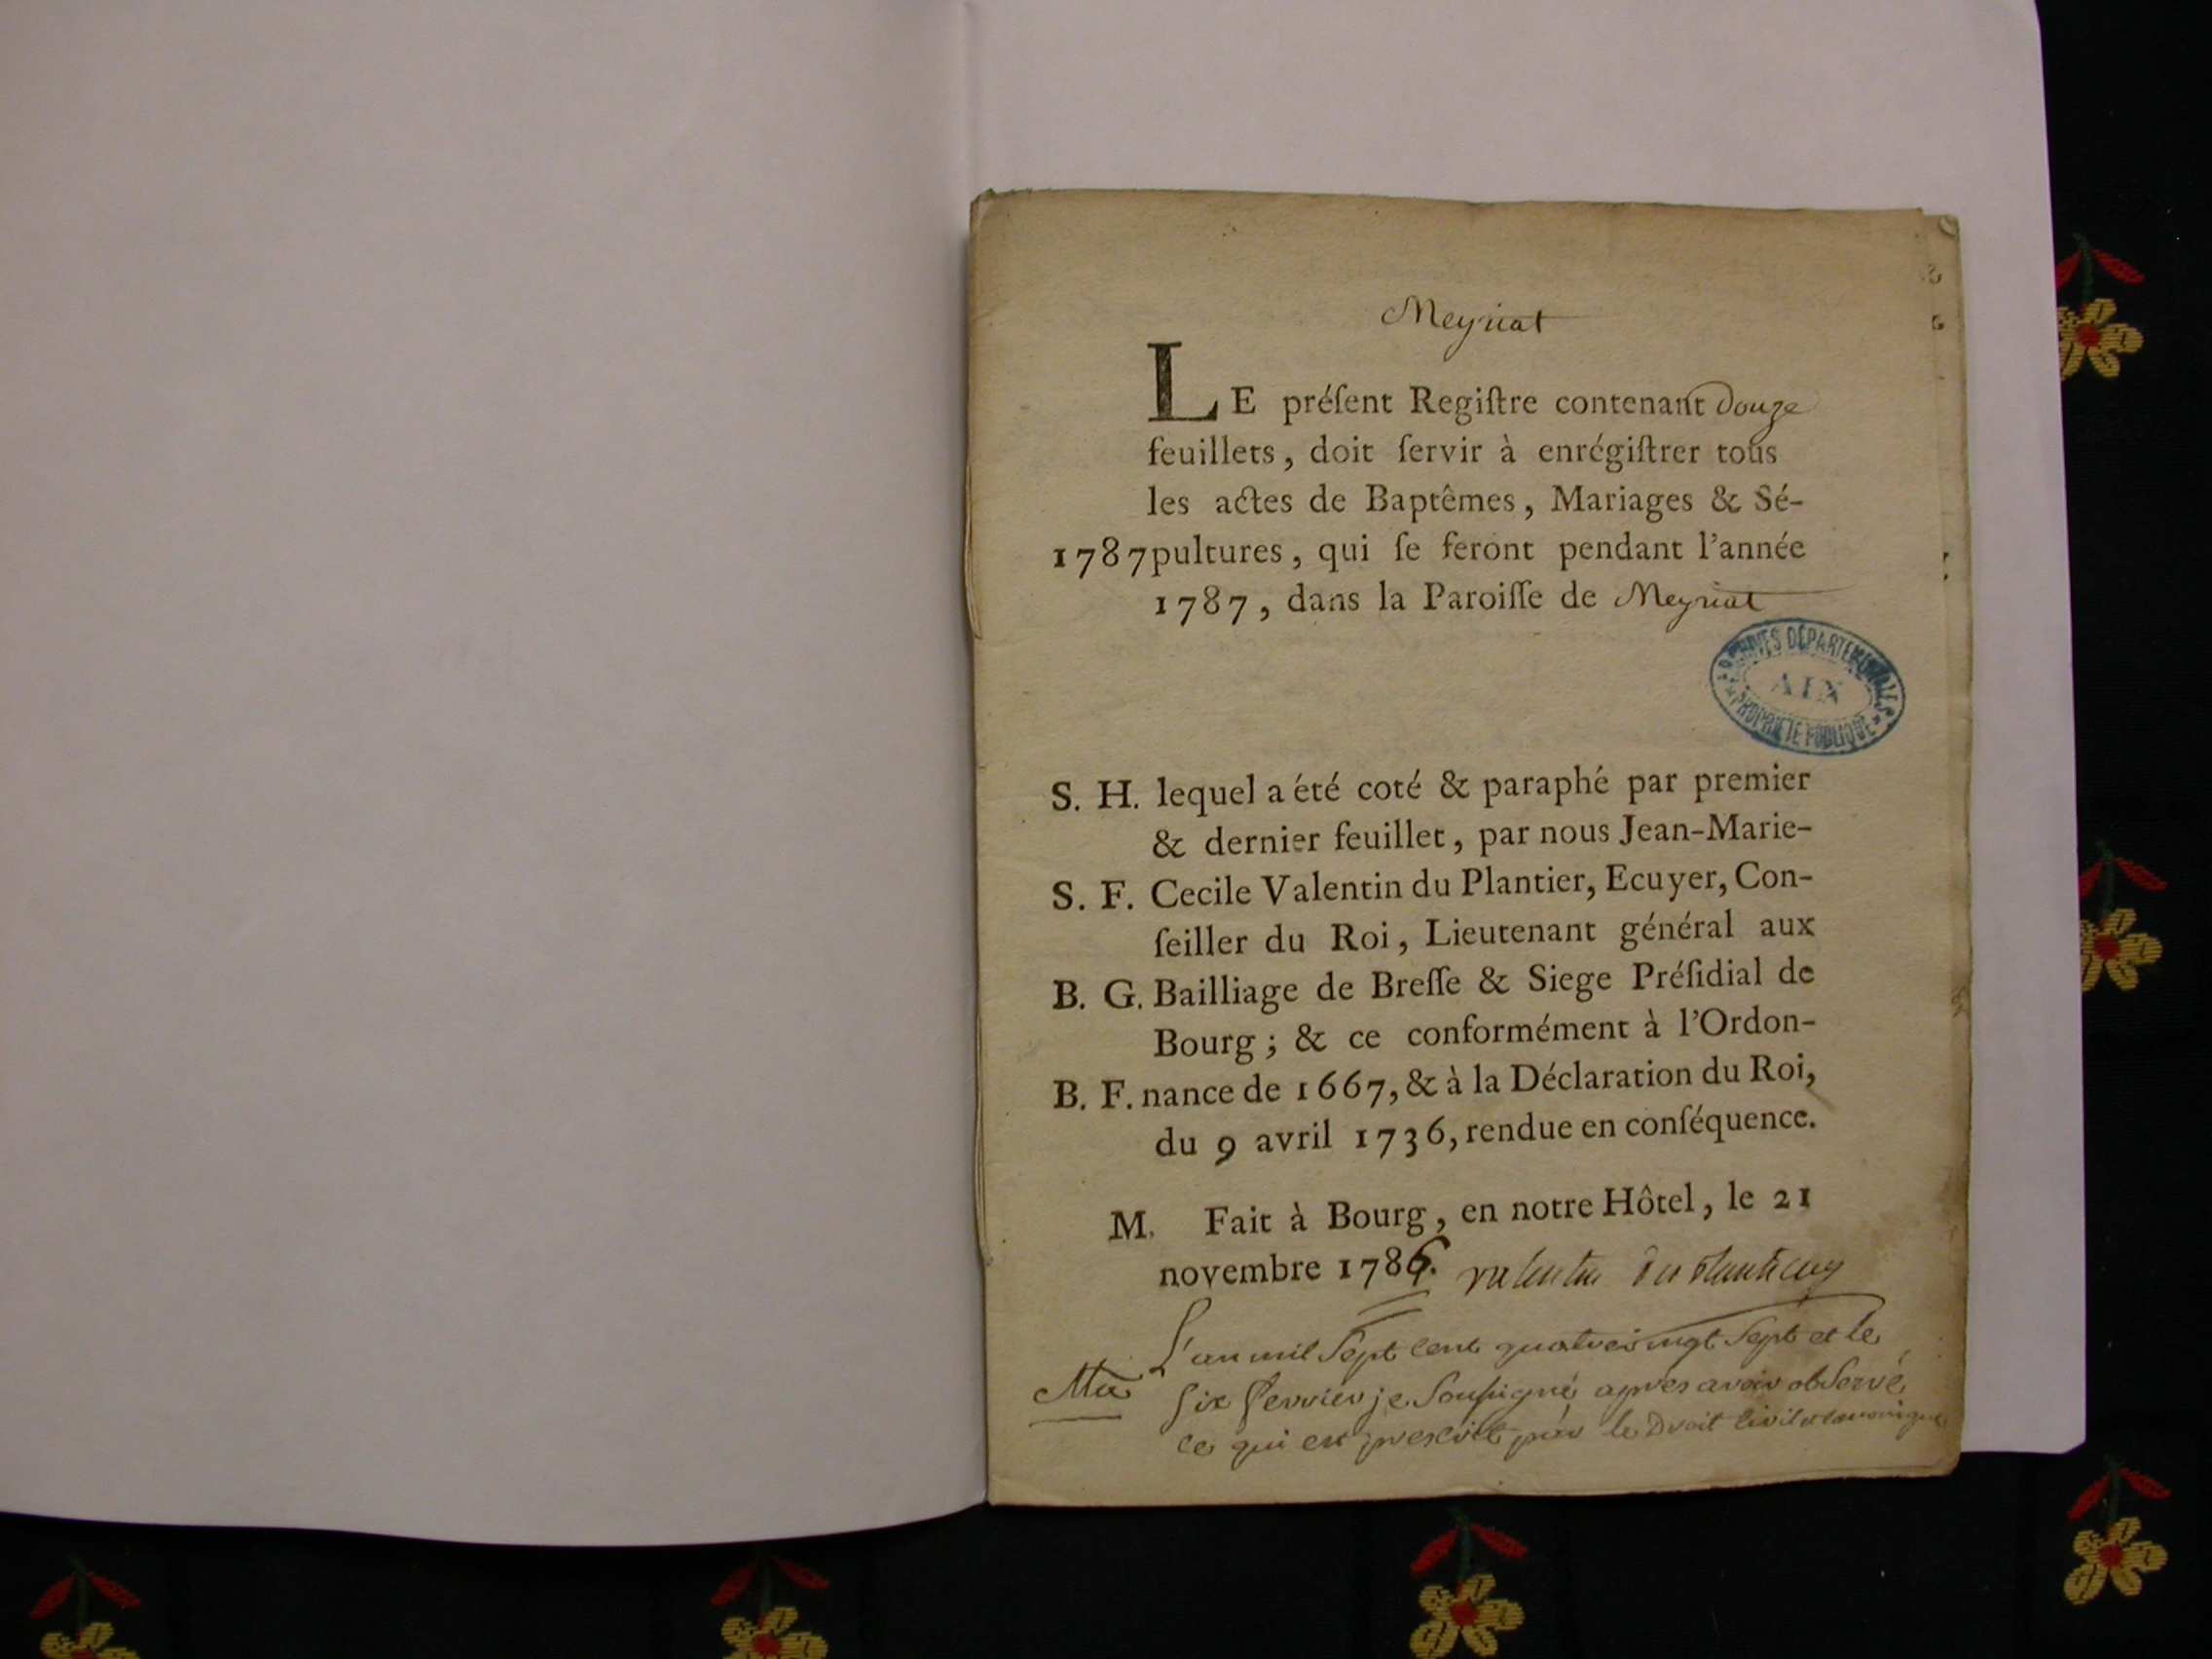 Meyriat
LE préſent Regiſtre contenant douze
feuillets, doit ſervir à enrégiſtrer tous
les actes de Baptêmes, Mariages & Sé-
1787 pultures, qui ſe feront pendant l'année
1787, dans la Paroiſſe de Meyriat
ARCHIVES DÉPARTEMENTALES
AIN
PROPRIÉTÉ PUBLIQUE
S. H. lequel a été coté & paraphé par premier
& dernier feuillet, par nous Jean-Marie-
S. F. Cecile Valentin du Plantier, Ecuyer, Con-
ſeiller du Roi, Lieutenant général aux
B. G. Bailliage de Breſſe & Siege Préſidial de
Bourg; & ce conformément à l'Ordon-
B. F. nance de 1667, & à la Déclaration du Roi,
du 9 avril 1736, rendue en conſéquence.
M. Fait à Bourg, en notre Hôtel, le 21
novembre 1786. valentin du plantier
L'an mil Sept cent quatrevingt Sept et le
Six fevrier je Souſigné apres avoir obServé
ce qui est prescrit par le Droit civil et canonique